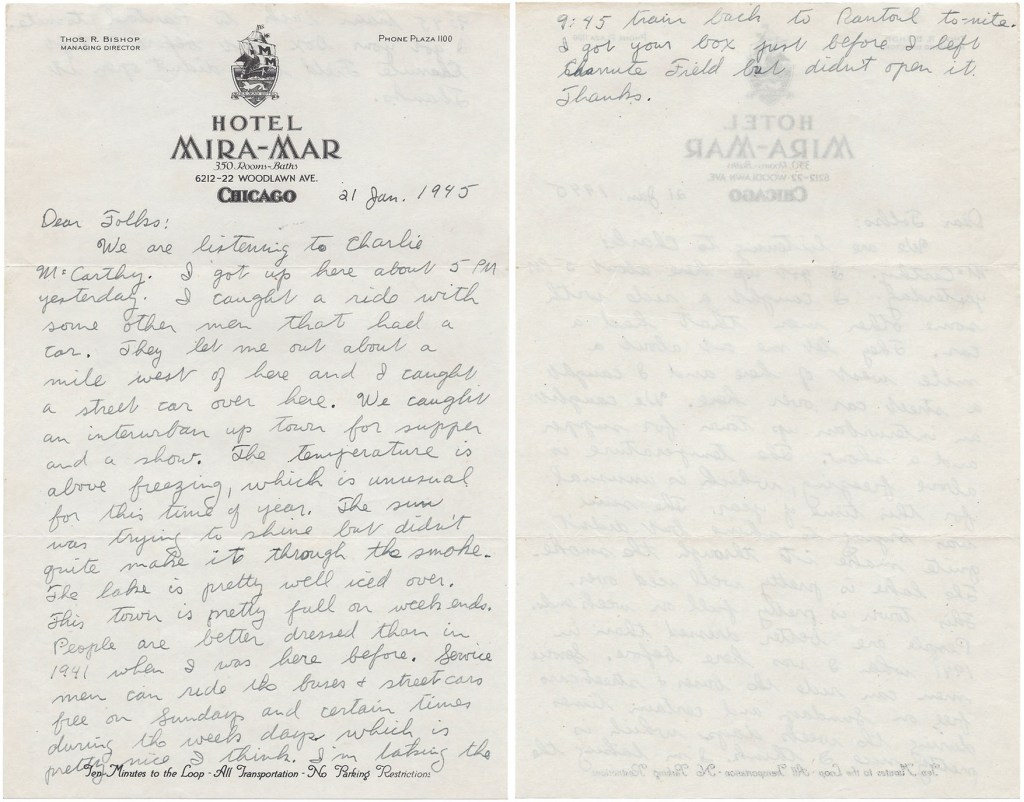 Thos. R. Bishop
Managing Director
Phone Plaza 1100
M
M M
HOTEL
MIRA-MAR
350 Rooms-Baths
6212-22 WOODLAWN AVE.
CHICAGO
21 Jan. 1945
Dear Folks:
We are listening to Charlie
McCarthy. I got up here about 5 PM
yesterday. I caught a ride with
some other men that had a
car. They let me out about a
mile west of here and I caught
a street car over here. We caught
an interurban up town for supper
and a show. The temperature is
above freezing, which is unusual
for this time of year. The sun
was trying to shine but didn't
quite make it through the smoke.
The lake is pretty well iced over.
This town is pretty full on week ends.
People are better dressed than in
1941 when I was here before. Service
men can ride the buses & streetcars
free on Sundays and certain times
during the week days which is
pretty nice I think. I'm taking the
Ten Minutes to the Loop - All Transportation - No Parking Restrictions
9:45 train back to Rantoul to-nite.
I got your box just before I left
Chanute Field but didn't open it.
Thanks.